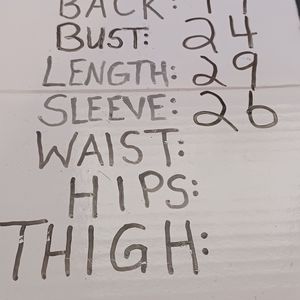 BACK:
BUST: 24
LENGTH: 29
SLEEVE: 26
WAIST:
HIPS:
THIGH: